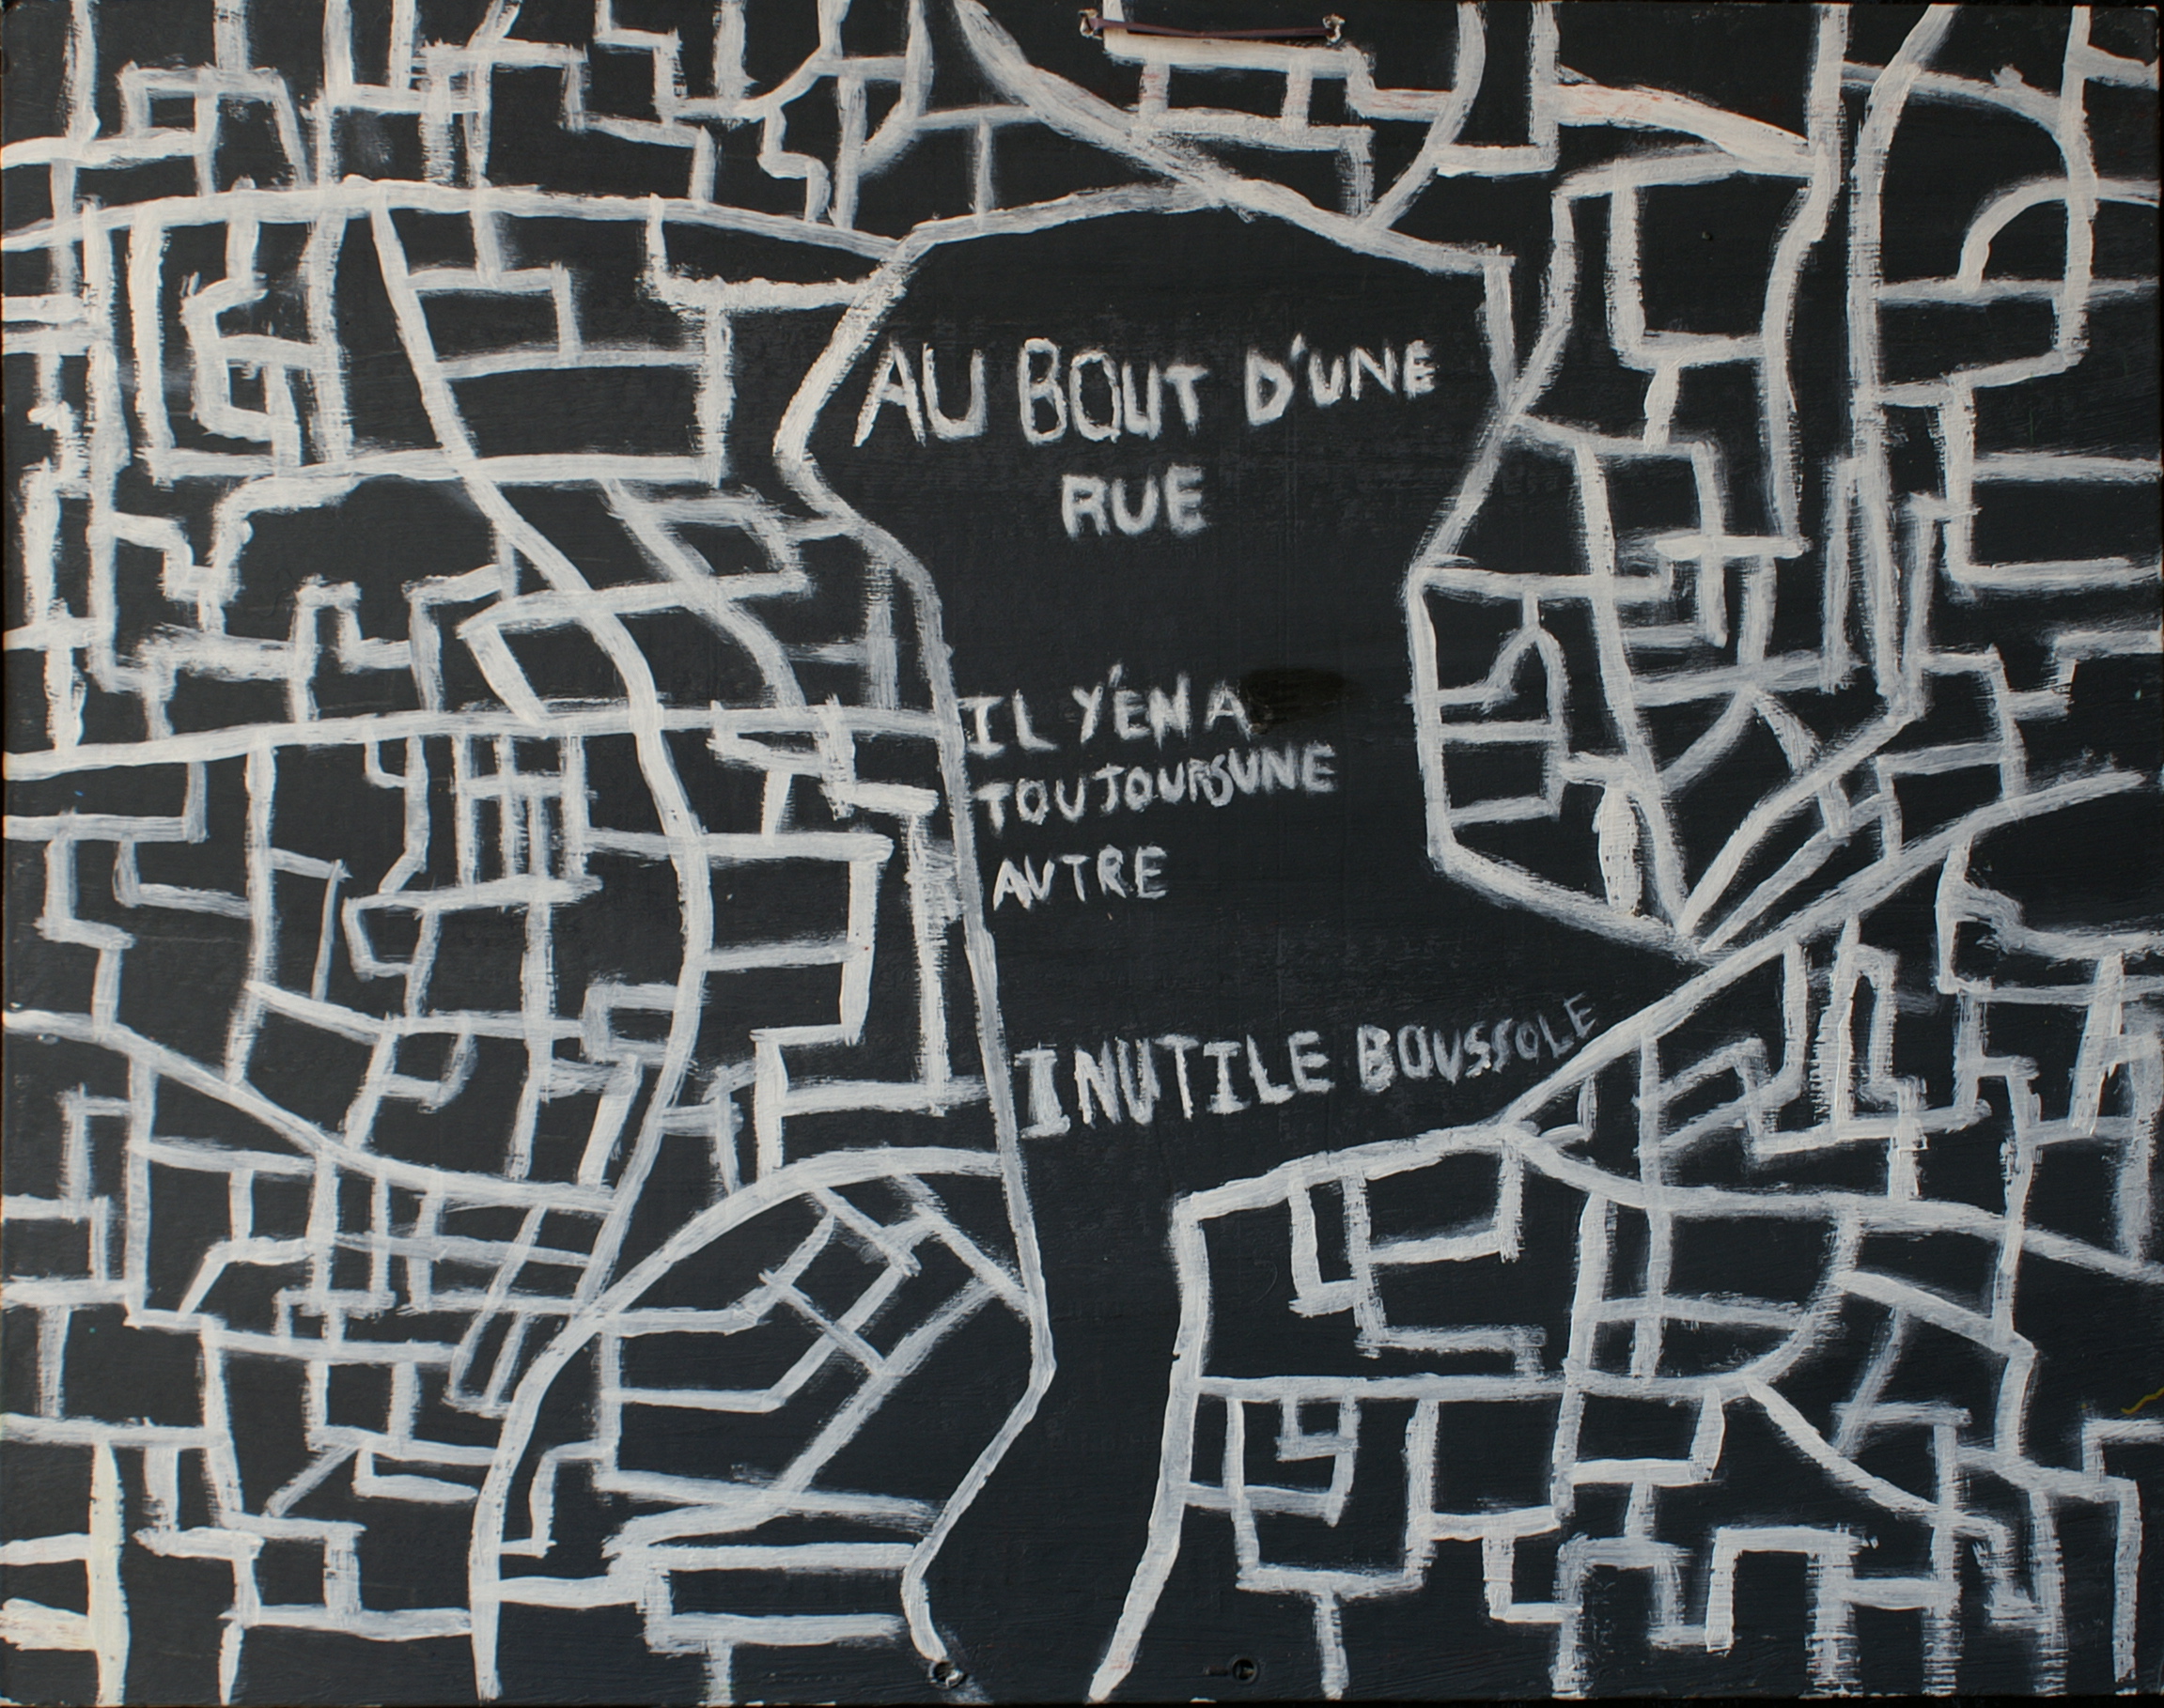 AU BOUT D'UNE
RUE
IL Y'EN A
TOUJOURSUNE
AUTRE
INUTILE BOUSSOLE